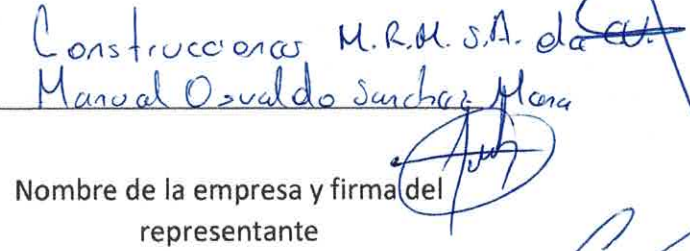 Construcciones M.R.M. S.A. de C.V.
Manuel Osvaldo Sanchez
Nombre de la empresa y firma del
representante